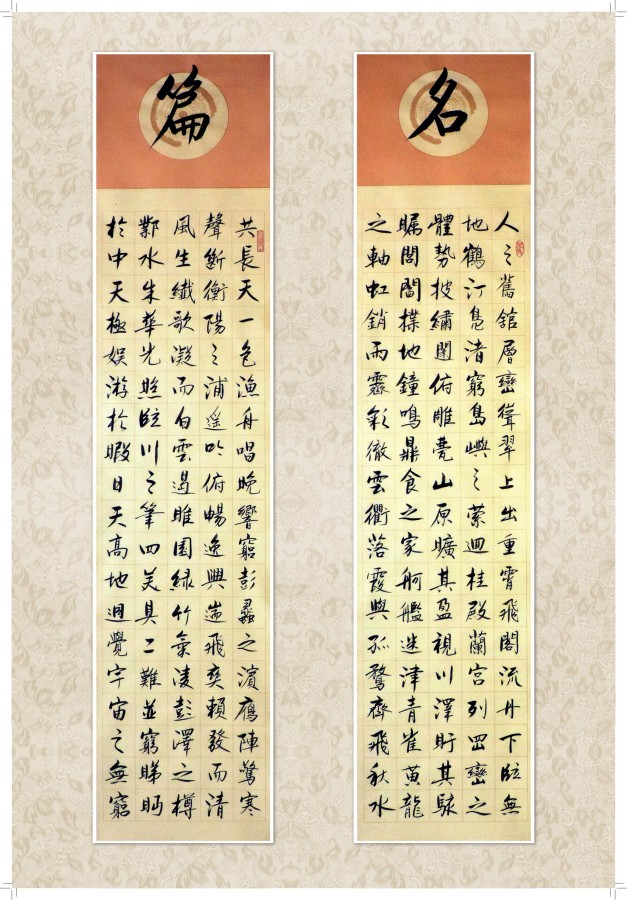 名
人之舊舘層巒聳翠上出重霄飛閣流丹下臨無
地鶴汀鳧渚窮島嶼之縈迴桂殿蘭宮列岡巒之
體勢披繡闥俯雕甍山原曠其盈視川澤盱其駭
矚閭閻撲地鐘鳴鼎食之家舸艦迷津青雀黃龍
之軸虹銷雨霽彩徹雲衢落霞與孤鶩齊飛秋水
篇
共長天一色漁舟唱晚響窮彭蠡之濱鴈陣驚寒
聲斷衡陽之浦遙吟俯暢逸興遄飛爽籟發而清
風生纖歌凝而白雲遏睢園綠竹氣凌彭澤之樽
鄴水朱華光照臨川之筆四美具二難並窮睇眄
於中天極娛游於暇日天高地迥覺宇宙之無窮